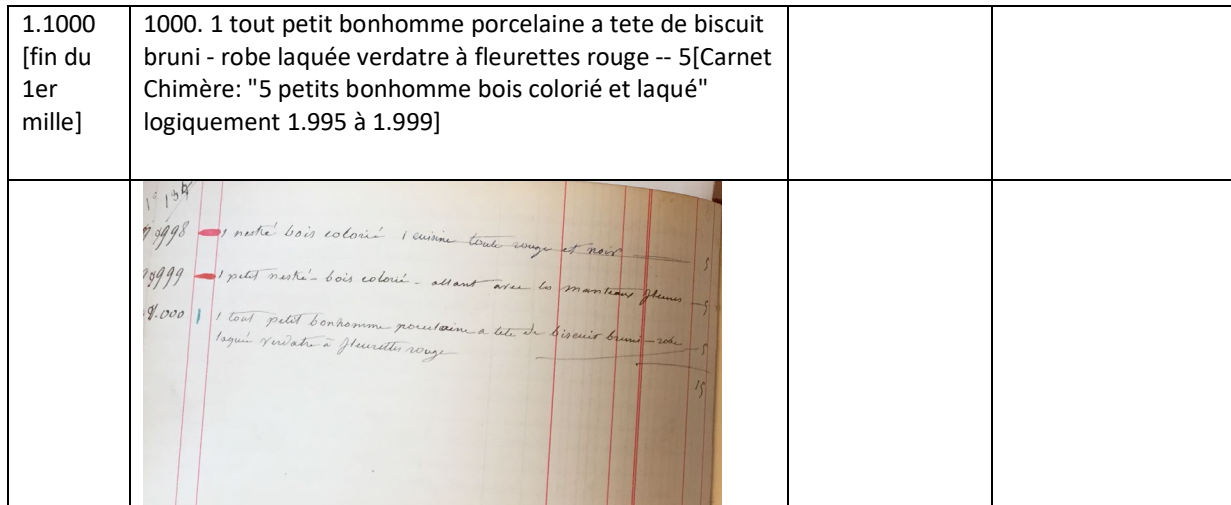 1.1000
[fin du
1er
mille]
1000. 1 tout petit bonhomme porcelaine a tete de biscuit
bruni - robe laquée verdatre à fleurettes rouge -- 5[Carnet
Chimère: "5 petits bonhomme bois colorié et laqué"
logiquement 1.995 à 1.999]
998 1 netské bois colorié 1 cuisine toute rouge et noir 5
999 1 petit netské - bois colorié - allant avec les manteaux fleuris 5
1.000 1 tout petit bonhomme porcelaine a tete de biscuit bruni - robe 5
laquée verdatre à fleurettes rouge
15